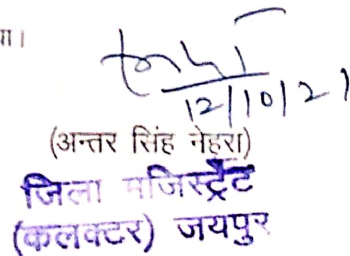 या।
12/10/21
(अन्तर सिंह नेहरा)
जिला मजिस्ट्रेट
(कलक्टर) जयपुर